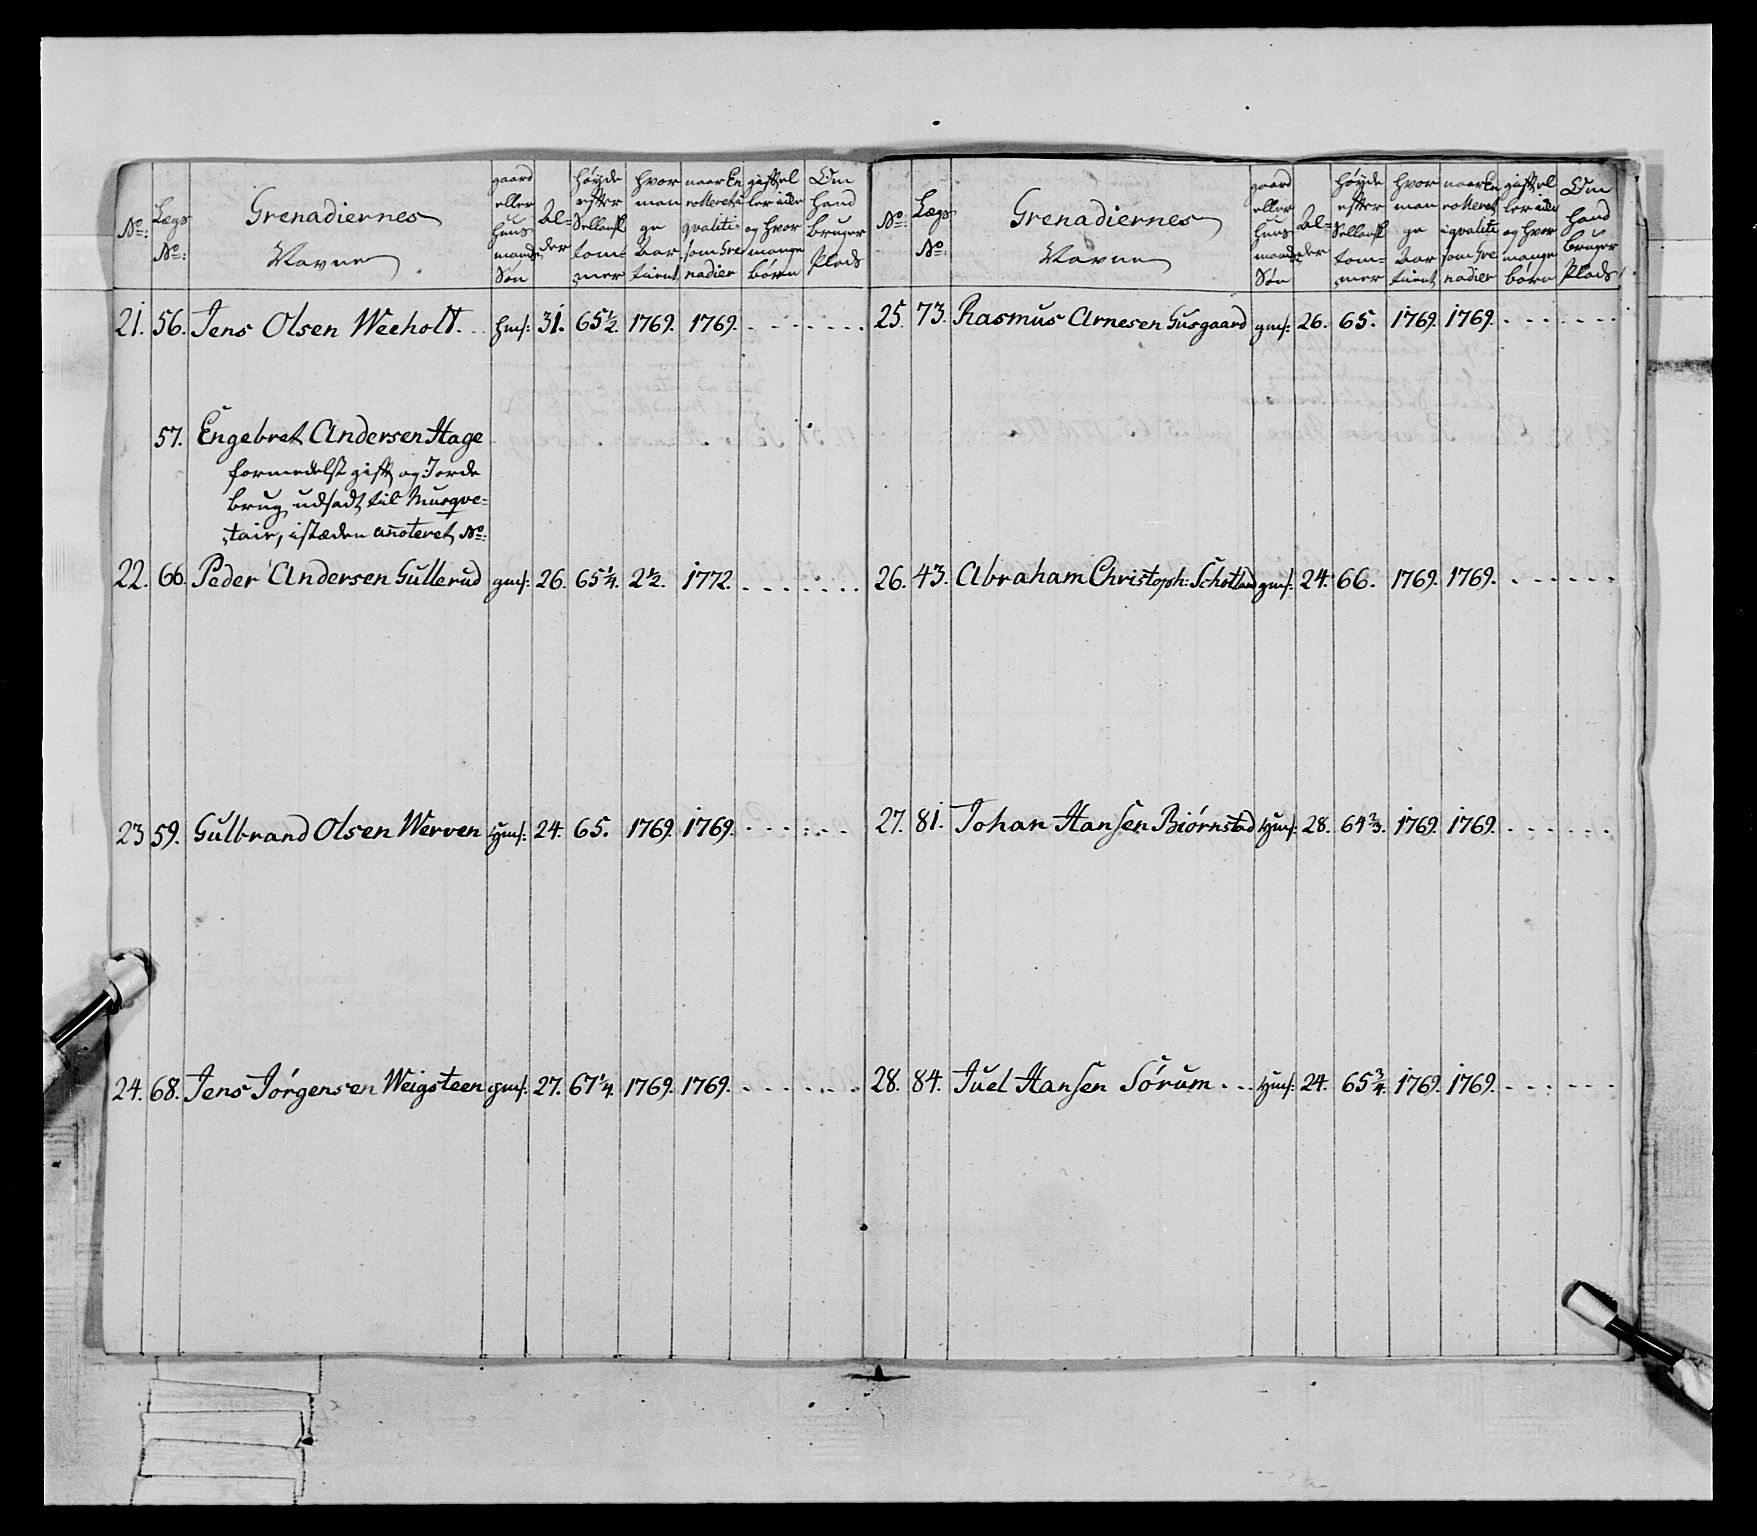 No:
Lægs No:
Grenadiernes Navne
gaard eller Huus mands Søn
Al- der
Høyde efter Sellansk tom- mer
hvor man ge Aar tient
naar En rolleret i qvalite som Gre nadier
gift el ler ide og hvor mange børn
Om hand bruger Plads
21. 56. Jens Olsen Weeholt. hms: 31. 65½ 1769. 1769. . . . . . .
57. Engebret Andersen Hage
formedelst gift og Jorde
brug udsadt til Musqve=
tair, isteden anoteret No:
22. 66. Peder Andersen Gullerud gms: 26. 65¼. 2½. 1772. . . . . . . .
23 59. Gulbrand Olsen Werven Hms: 24. 65. 1769. 1769. . . . . . .
24. 68. Jens Jörgensen Weigsteen gms: 27. 67¼. 1769. 1769. . . . . . .
No:
Lægs No:
Grenadiernes Navne
gaard eller Huus mands Søn
Al- der
Høyde efter Sellansk tom- mer
hvor man ge Aar tient
naar En rolleret i qvalite som Gre nadier
gift el ler ide og hvor mange børn
Om Hand bruger Plads
25. 73. Rasmus Arnesen Gusgaard gms: 26. 65. 1769. 1769. . . . . . .
26. 43. Abraham Christoph: gms: 24. 66. 1769. 1769. . . . . . .
27. 81. Johan Hansen Biørnstad Hms: 28. 64⅔. 1769. 1769. . . . . . .
28. 84. Juel Hansen Sörum . . . Hms: 24. 65¾. 1769. 1769. . . . . . .